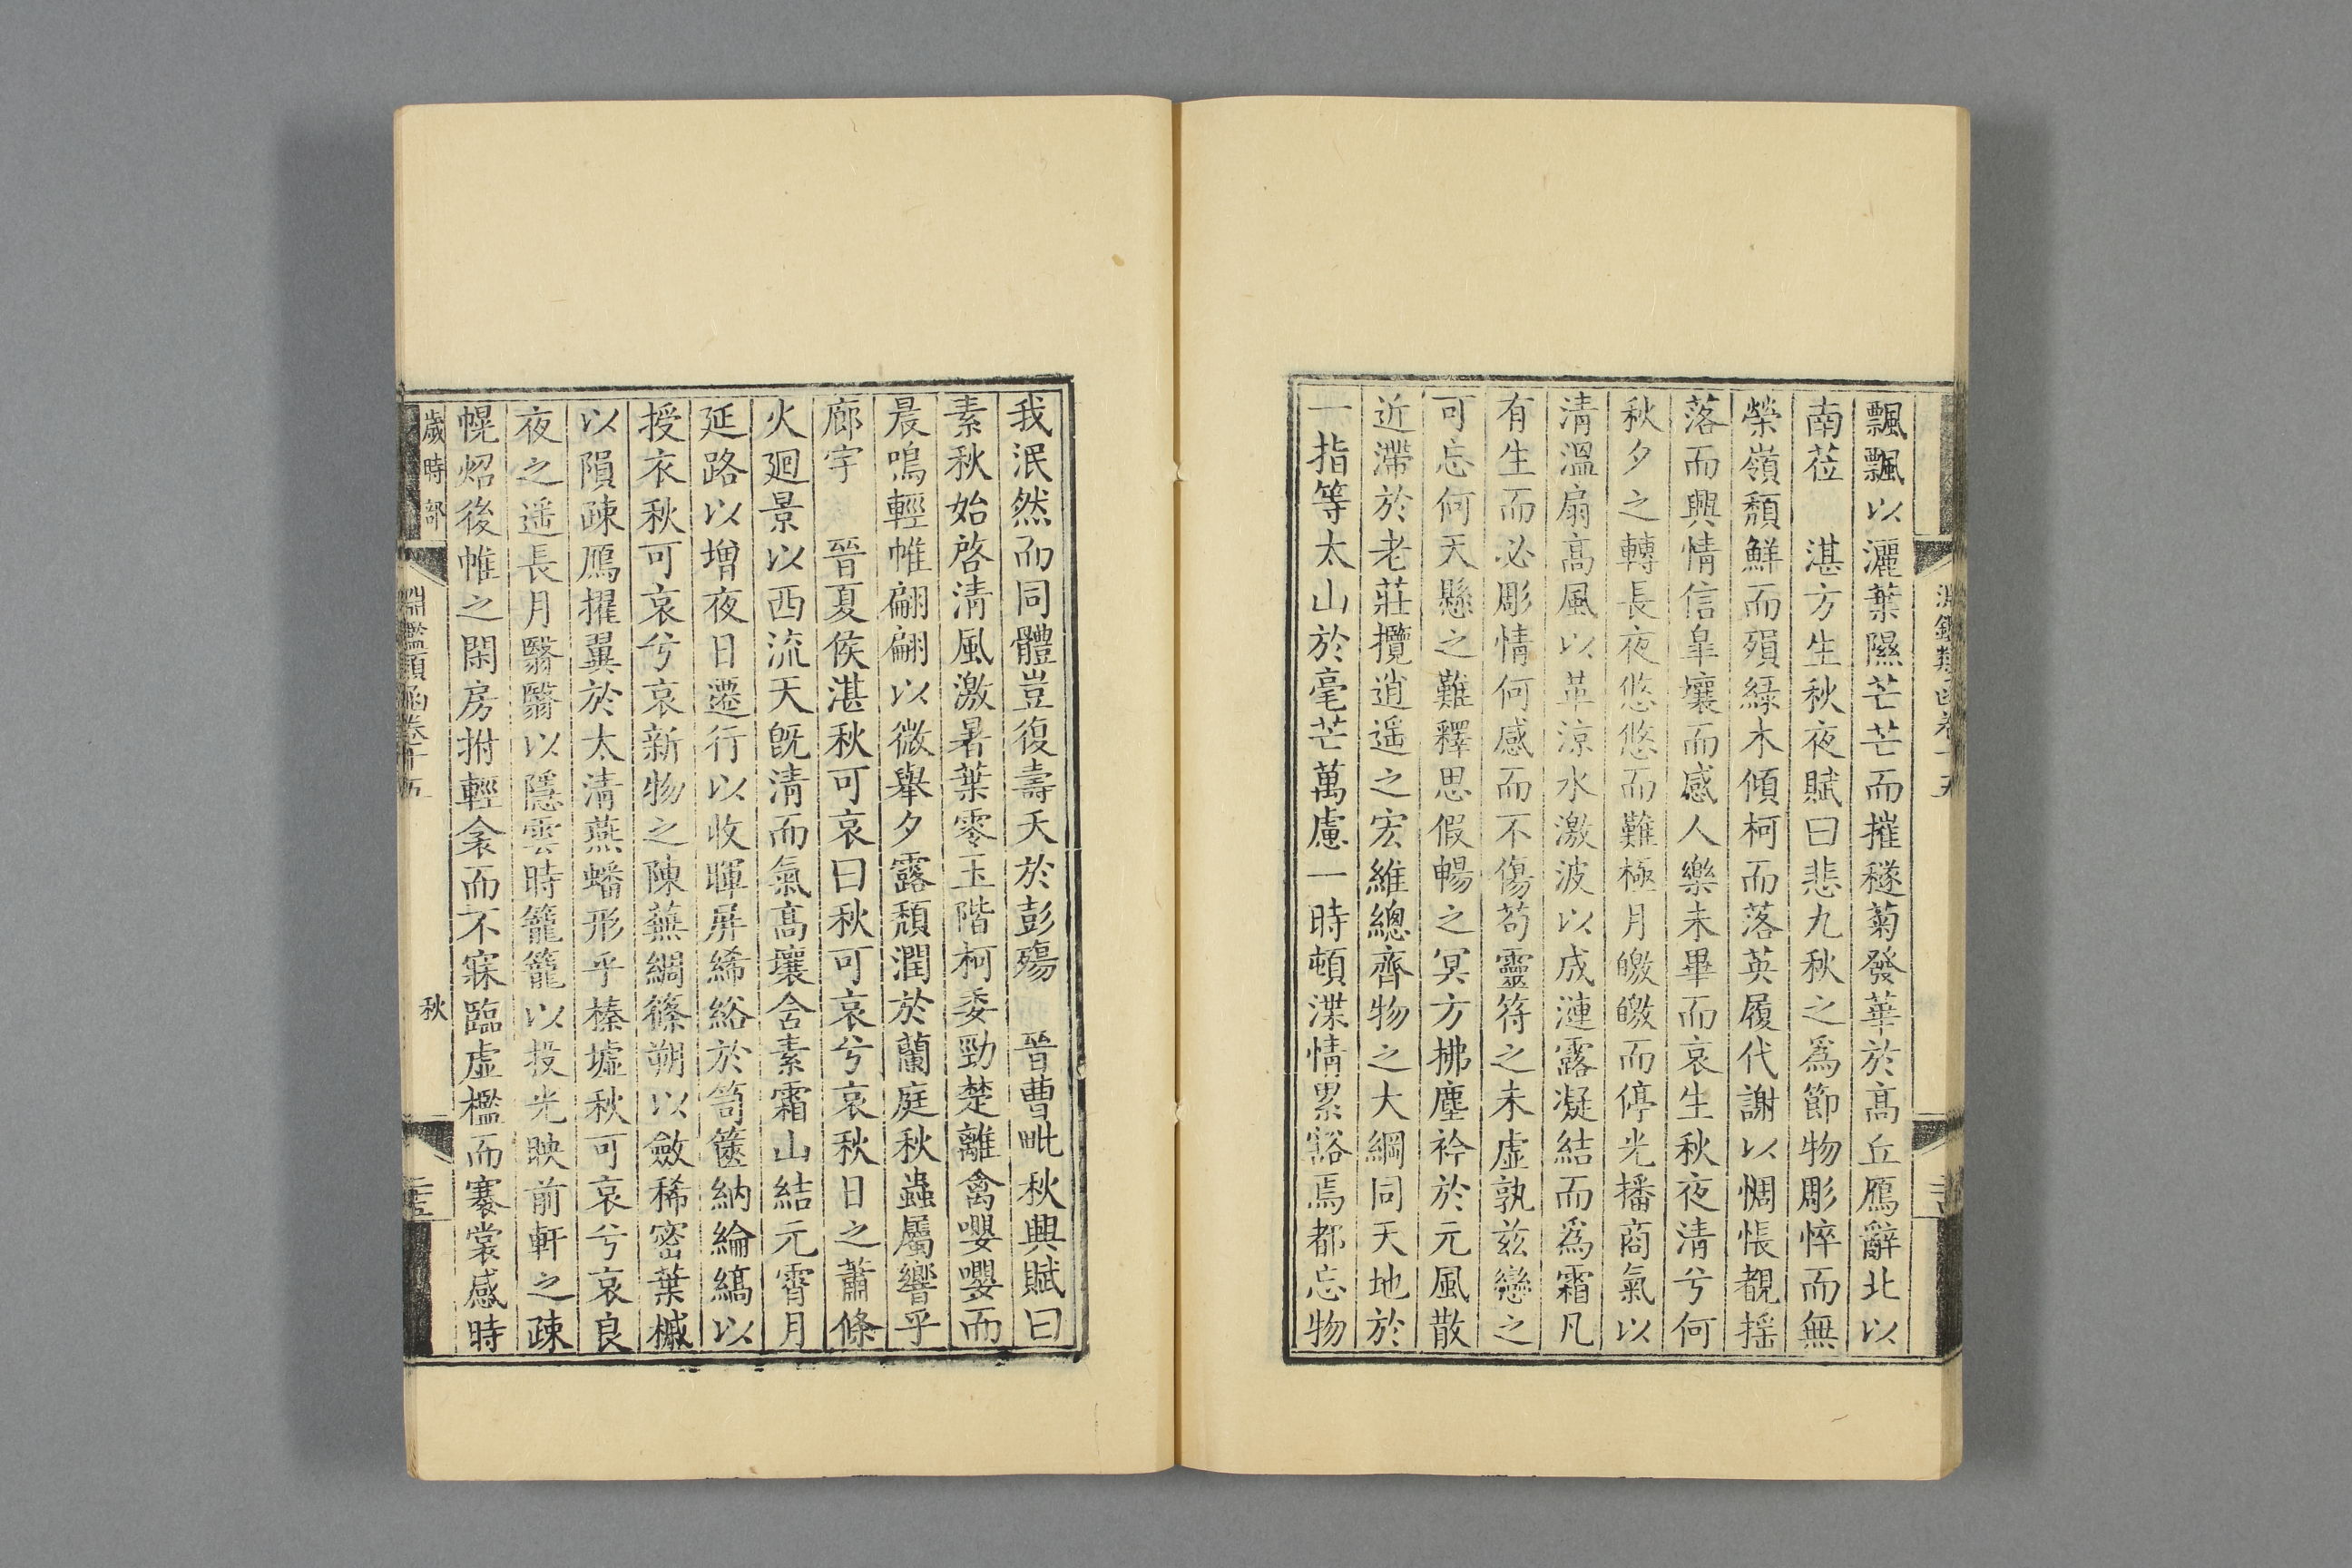 飄飄以灑葉隰芒芒而摧穟菊發華於髙丘鴈辭北以
南莅　湛方生秋夜賦曰悲九秋之爲節物彫悴而無
榮嶺頽鮮而殞緑木傾柯而落英履代謝以惆悵覩揺
落而興情信臯壤而感人樂未畢而哀生秋夜清兮何
秋夕之轉長夜悠悠而難極月皦皦而停光播商氣以
清溫扇高風以革涼水激波以成漣露凝結而爲霜凡
有生而必彫情何感而不傷苟靈符之未虛孰茲戀之
可忘何天懸之難釋思假暢之冥方拂塵衿於元風散
近滯於老莊攬逍遥之宏維總齊物之大綱同天地於
一指等太山於毫芒萬慮一時頓渫情累豁焉都忘物
淵鑑類函卷十五
我泯然而同體豈復壽夭於彭殤　晉曹毗秋興賦曰
素秋始啓清風激暑葉零玉階柯委勁楚離禽嚶嚶而
晨鳴輕帷翩翩以微舉夕露頽潤於蘭庭秋蟲屬響乎
廊宇　晉夏侯湛秋可哀曰秋可哀兮哀秋日之蕭條
火廻景以西流天旣清而氣高壤含素霜山結元霄月
延路以增夜日遷行以收暉屏絺綌於笥篋納綸縞以
授衣秋可哀兮哀新物之陳蕪綢篠朔以斂稀密葉槭
以隕疎鴈擢翼於太清燕蟠形乎榛墟秋可哀兮哀良
夜之遥長月翳翳以隱雲時籠籠以投光映前軒之疎
幌炤後帷之閑房拊輕衾而不寐臨虛檻而褰裳感時
歲時部
淵鑑類函卷十五
秋